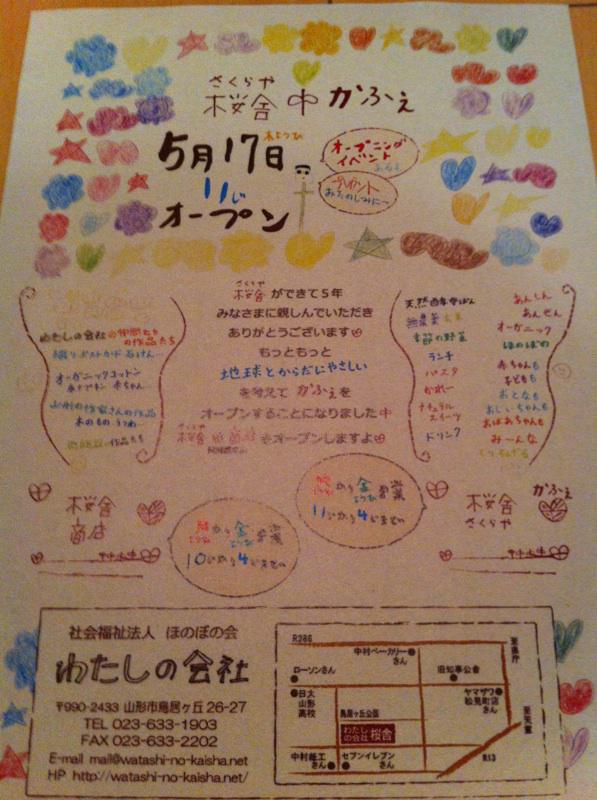 さくらや
桜舎 中 かふぇ
5月17日 木ようび
11じ
オープン
オープニング
イベント
あるよ
プレゼント
おたのしみにー
さくらや
桜舎ができて5年
みなさまに親しんでいただき
ありがとうございます
もっともっと
地球とからだにやさしい
を考えて かふぇを
オープンすることになりました
さくらや
桜舎 商店もオープンしますよ
わたしの会社の仲間たち
の作品たち
織り ポストカード 石けん…
オーガニックコットン
布ナプキン 赤ちゃん…
山形の作家さんの作品
木のもの うつわ…
作品たち
天然酵母ぱん
無農薬 玄米
季節の野菜
ランチ
パスタ
かれー
ナチュラル
スイーツ
ドリンク
あんしん
あんぜん
オーガニック
ほのぼの
赤ちゃんも
子どもも
おとなも
おじいちゃんも
おばあちゃんも
みーんな
桜舎
商店
から金ようび営業
10じから4じまでの
から金ようび営業
11じから4じまでの
かふぇ
桜舎
さくらや
社会福祉法人 ほのぼの会
わたしの会社
〒990-2433 山形市鳥居ヶ丘26-27
TEL 023-633-1903
FAX 023-633-2202
E-mail mail@watashi-no-kaisha.net
HP http://watashi-no-kaisha.net/
R286
中村ベーカリー
さん
至県庁
ローソンさん
旧知事公舎
日大
山形
高校
ヤマザワ
松見町店
さん
鳥居ヶ丘公園
わたし
の会社 桜舎
至天童
中村紙工
さん
セブンイレブン
さん
R13